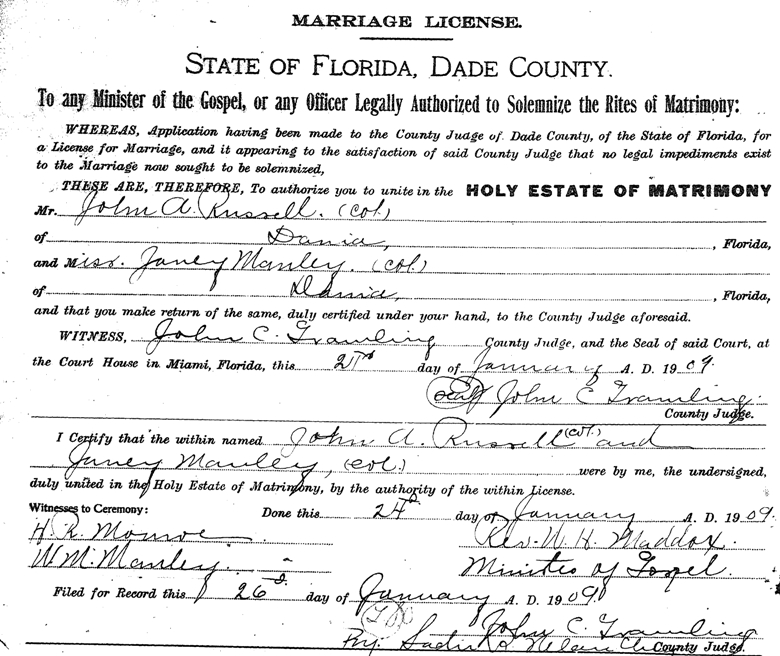 MARRIAGE LICENSE.
STATE OF FLORIDA, DADE COUNTY.
To any Minister of the Gospel, or any Officer Legally Authorized to Solemnize the Rites of Matrimony:
WHEREAS, Application having been made to the County Judge of Dade County, of the State of Florida, for
a License for Marriage, and it appearing to the satisfaction of said County Judge that no legal impediments exist
to the Marriage now sought to be solemnized,
THESE ARE, THEREFORE, To authorize you to unite in the HOLY ESTATE OF MATRIMONY
Mr. John A. Russell. (col.)
of Dania, , Florida,
and Miss. Janey Manley. (col.)
of Dania, , Florida,
and that you make return of the same, duly certified under your hand, to the County Judge aforesaid.
WITNESS, John C. Gramling County Judge, and the Seal of said Court, at
the Court House in Miami, Florida, this day of January A. D. 1909.
(Seal) John C Gramling.
County Judge.
I Certify that the within named John A. Russell (col.) and
Janey Manley, (col.) were by me, the undersigned,
duly united in the Holy Estate of Matrimony, by the authority of the within License.
Witnesses to Ceremony: Done this 24th day of January A. D. 1909.
H. R. Monroe Rev. W. H. Maddox.
W. M. Manley. Minister of Gospel.
Filed for Record this 26 day of January A. D. 1909
John C. Gramling
By: County Judge.